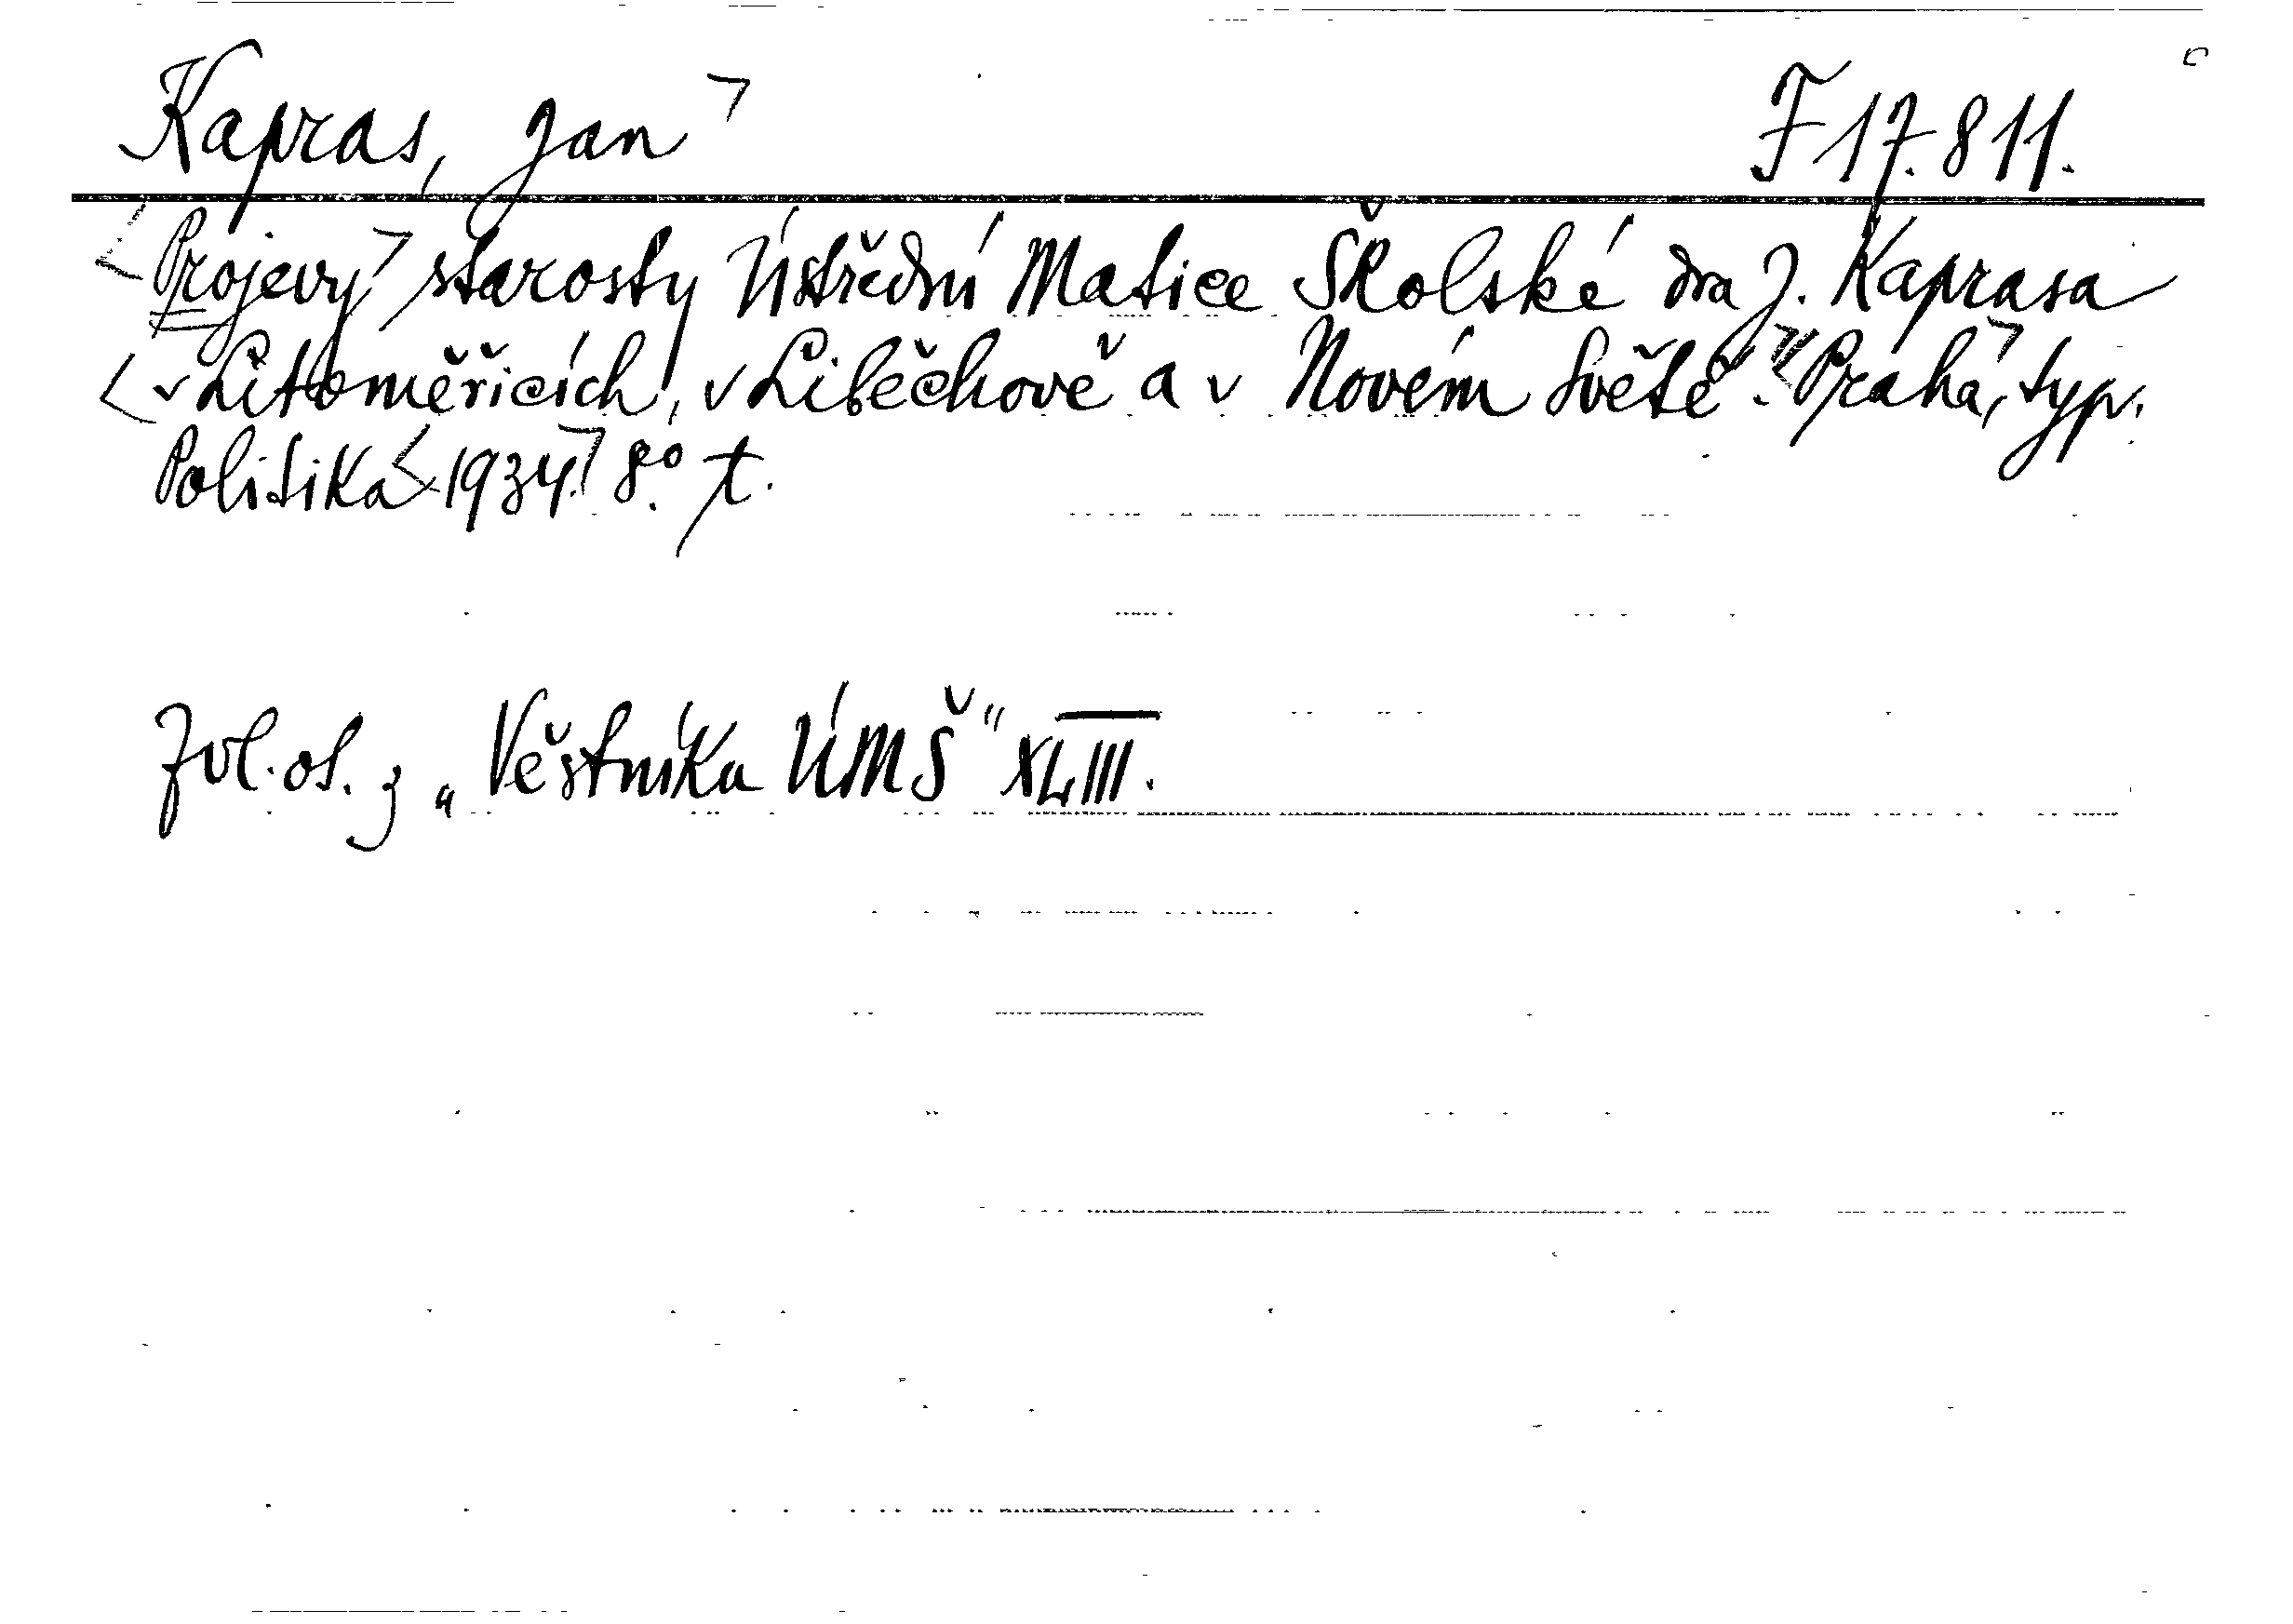 Kapras, Jan F 17.811.
Projevy starosty Ústřední Matice Školské dra J. Kaprasa
v Litoměřicích, v Liběchově a v Novém Světě. Praha, typ.
Politika 1934. 8° t.
Zvl. ot. z „Věstníka ÚMŠ" XLIII.